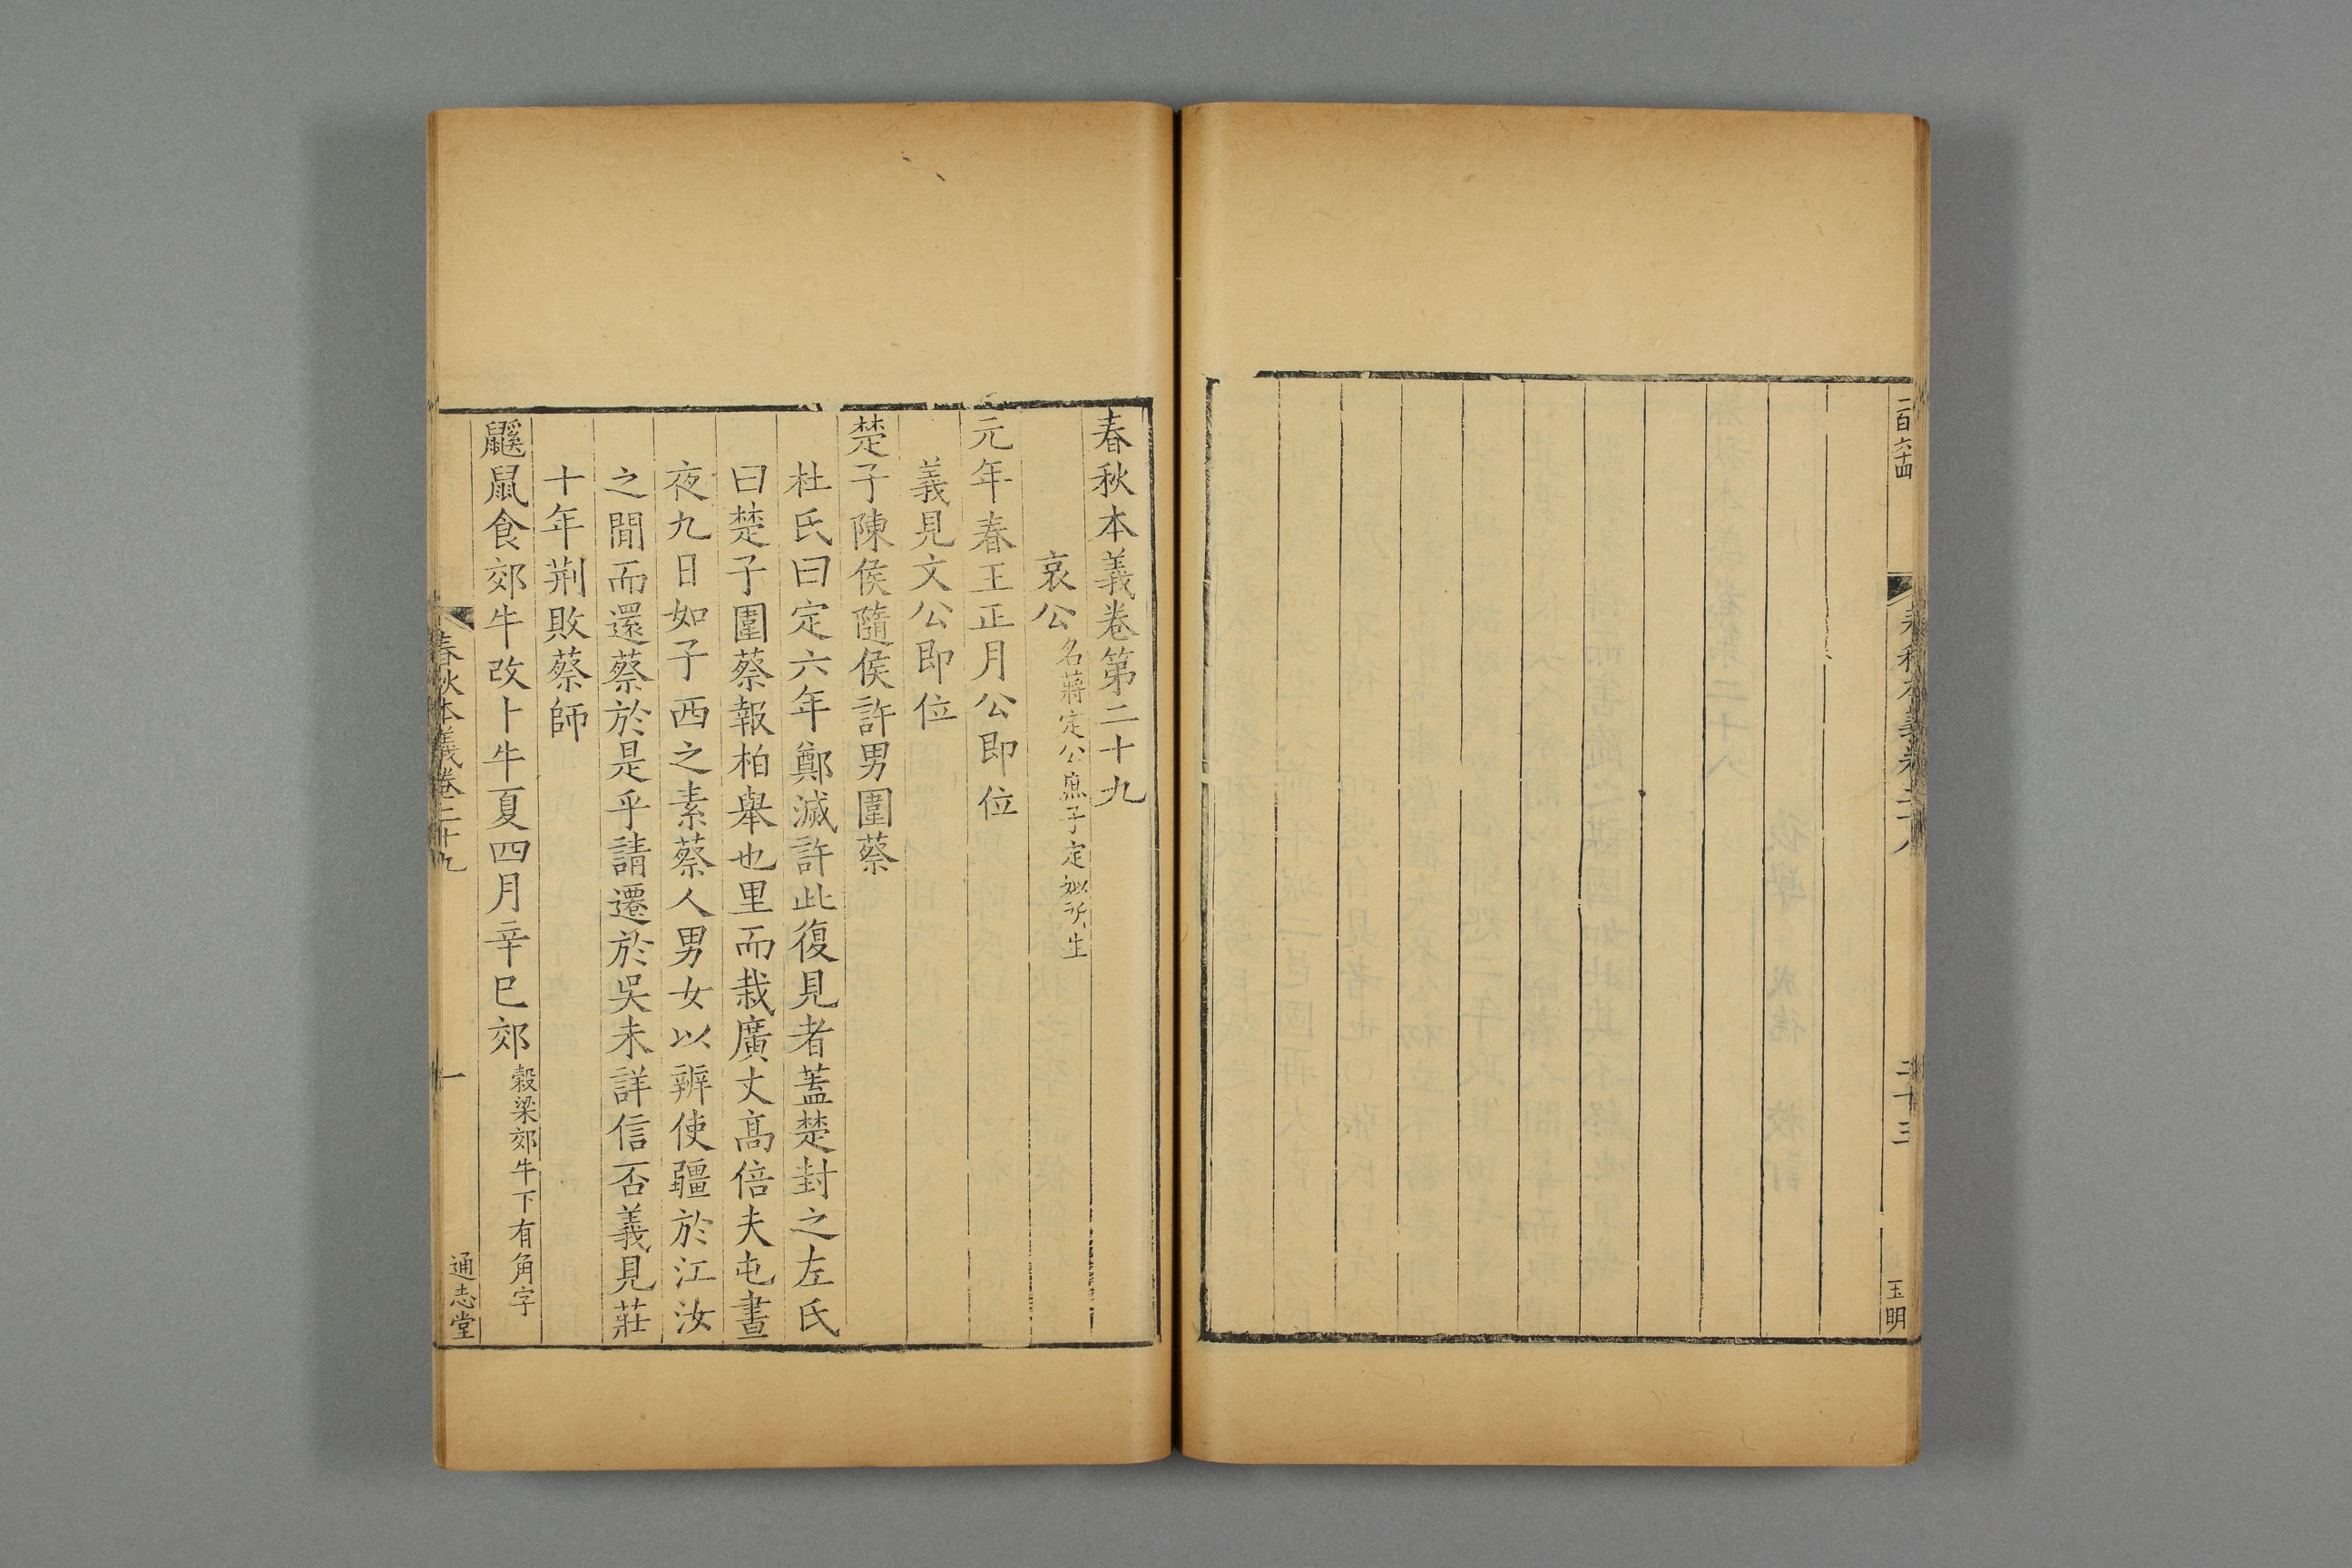 二百六十四
春秋本義卷二十八
二十三
玉明
春秋本義卷第二十九
哀公名蔣定公庶子定姒所生
元年春王正月公即位
義見文公即位
楚子陳侯隨侯許男圍蔡
杜氏曰定六年鄭滅許此復見者蓋楚封之左氏
曰楚子圍蔡報柏舉也里而栽廣丈高倍夫屯晝
夜九日如子西之素蔡人男女以辨使疆於江汝
之間而還蔡於是乎請遷於吳未詳信否義見莊
十年荆敗蔡師
鼷鼠食郊牛改卜牛夏四月辛巳郊穀梁郊牛下有角字
春秋本義卷二十九
一
通志堂